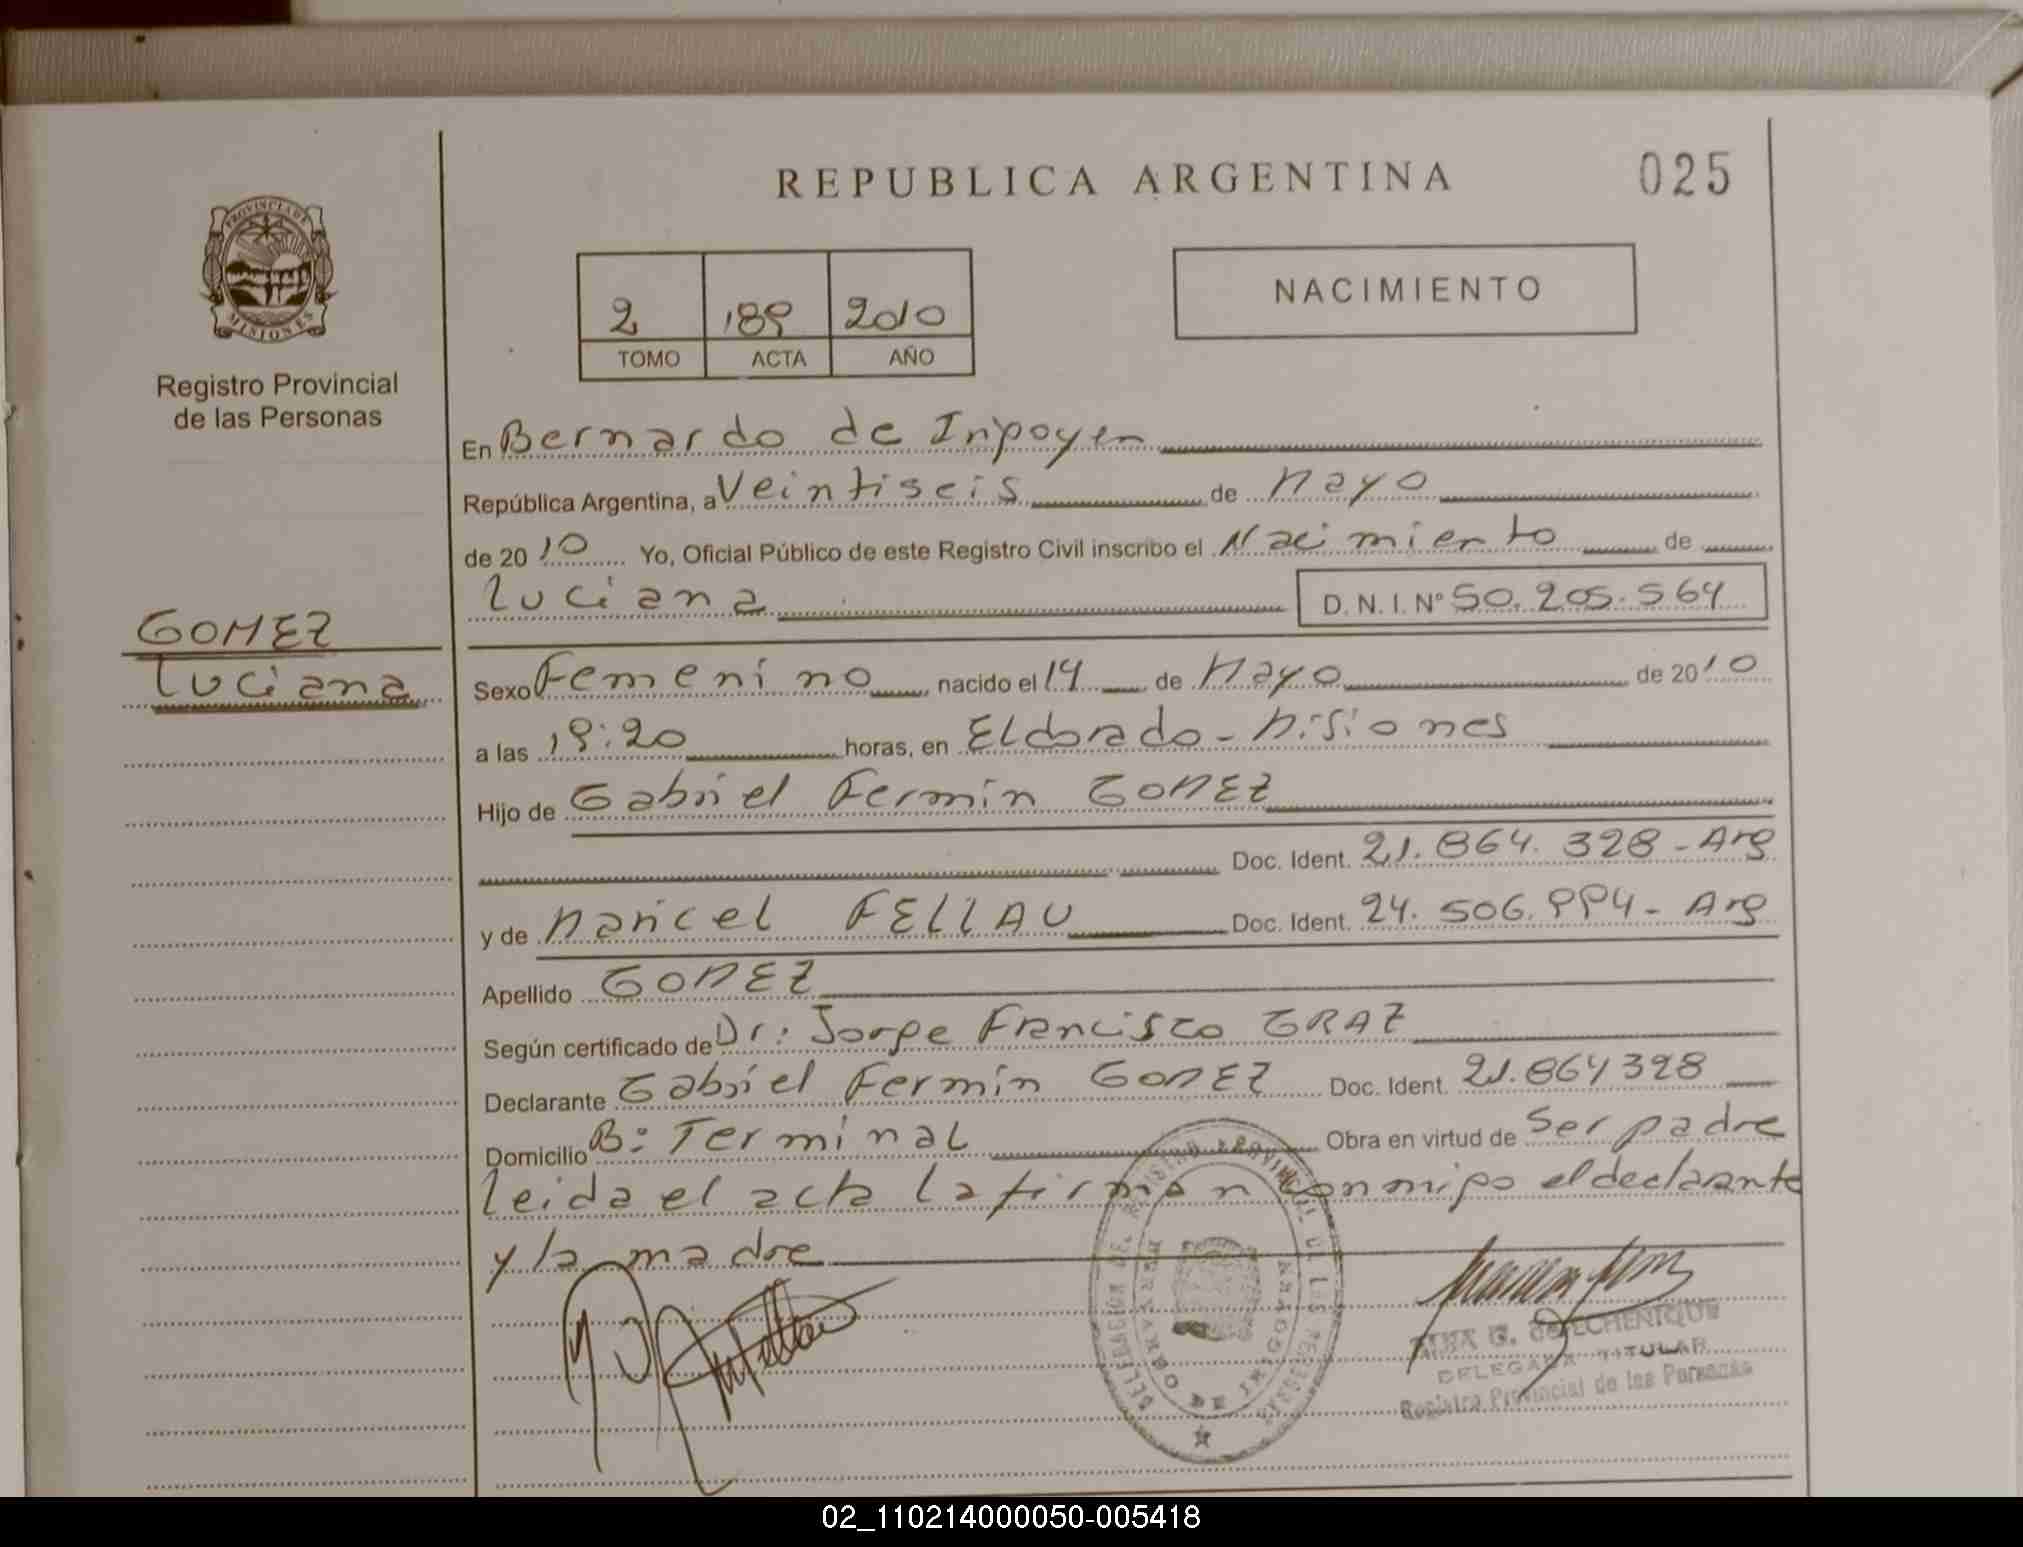 REPUBLICA ARGENTINA
025
PROVINCIA DE
MISIONES
Registro Provincial
de las Personas
2 189 2010
TOMO ACTA AÑO
NACIMIENTO
En Bernardo de Irigoyen
República Argentina, a Veintiseis de Mayo
de 20 10 Yo, Oficial Público de este Registro Civil inscribo el Nacimiento de
Luciana D.N.I. Nº 50.205.564
GOMEZ
Luciana
Sexo Femenino nacido el 14 de Mayo de 20 10
a las 19:20 horas, en Eldorado - Misiones
Hijo de Gabriel Fermin GOMEZ
Doc. Ident. 21.864.328 - Arg
y de Maricel FELLAU Doc. Ident. 24.506.994 - Arg
Apellido GOMEZ
Según certificado de Dr: Jorge Francisco GRAZ
Declarante Gabriel Fermin GOMEZ Doc. Ident. 21.864328
Domicilio B: Terminal Obra en virtud de Ser padre
Leida el acta la firman conmigo el declarante
y la madre
DELEGACION DEL REGISTRO PROVINCIAL DE LAS PERSONAS
BERNARDO DE IRIGOYEN
G. de ECHENIQUE
DELEGADA TITULAR
Registro Provincial de las Personas
02_110214000050-005418